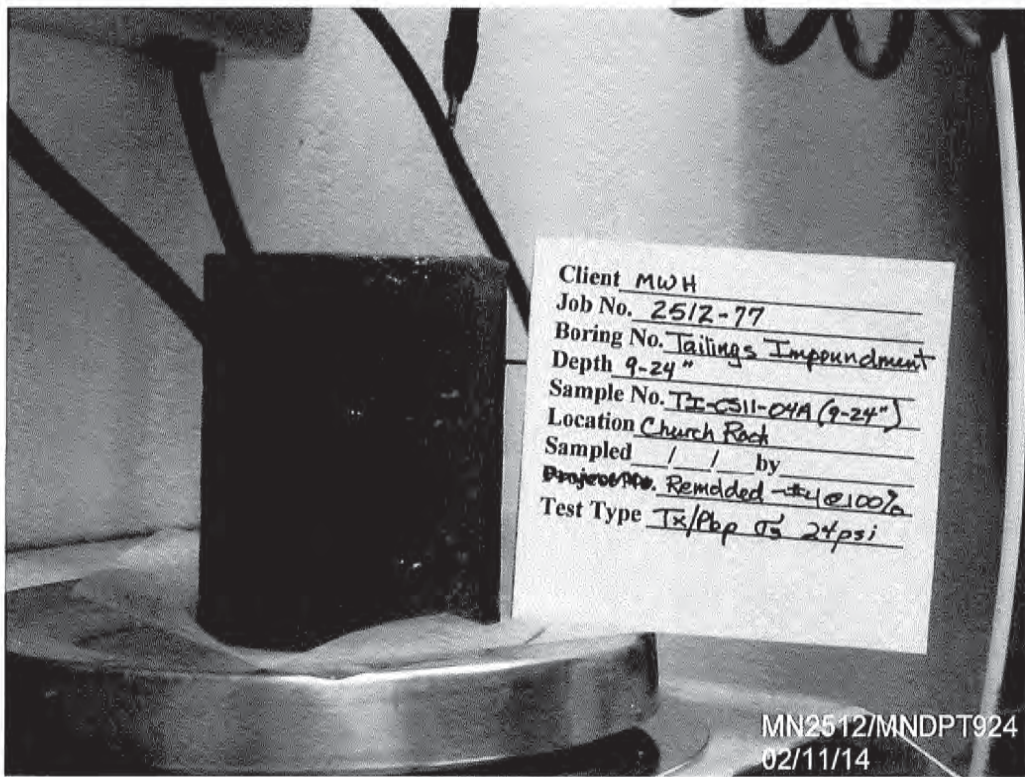 Client MWH
Job No. 2512-77
Boring No. Tailings Impoundment
Depth 9-24"
Sample No. TI-CS11-04A (9-24")
Location Church Rock
Sampled / / by
Remolded -#4@100%
Test Type Tx/Pbp σ'3 24psi
MN2512/MNDPT924
02/11/14